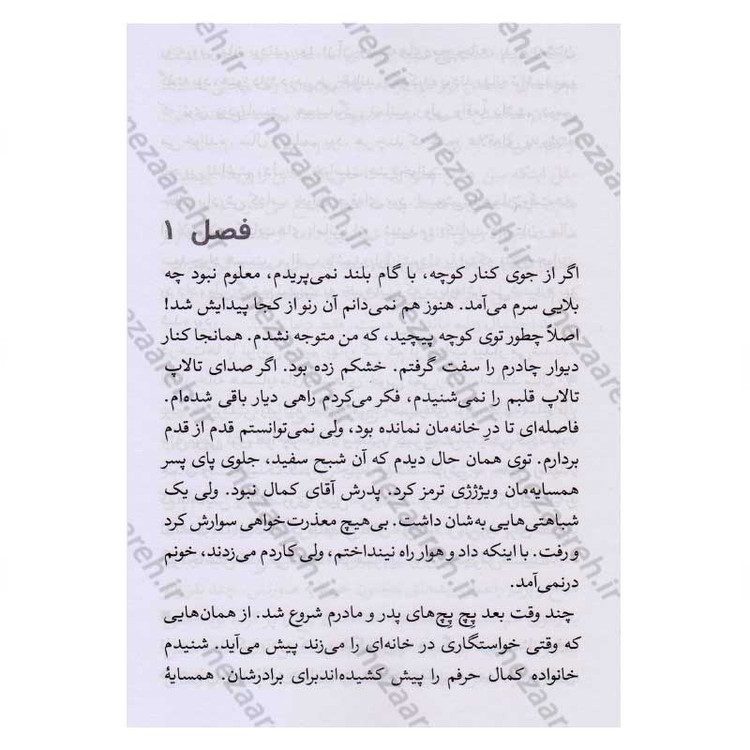 فصل ۱
اگر از جوی کنار کوچه، با گام بلند نمی‌پریدم، معلوم نبود چه
بلایی سرم می‌آمد. هنوز هم نمی‌دانم آن رنو از کجا پیدایش شد!
اصلاً چطور توی کوچه پیچید، که من متوجه نشدم. همانجا کنار
دیوار چادرم را سفت گرفتم. خشکم زده بود. اگر صدای تالاپ
تالاپ قلبم را نمی‌شنیدم، فکر می‌کردم راهی دیار باقی شده‌ام.
فاصله‌ای تا درِ خانه‌مان نمانده بود، ولی نمی‌توانستم قدم از قدم
بردارم. توی همان حال دیدم که آن شبح سفید، جلوی پای پسر
همسایه‌مان ویژژژی ترمز کرد. پدرش آقای کمال نبود. ولی یک
شباهتی‌هایی به‌شان داشت. بی‌هیچ معذرت‌خواهی سوارش کرد
و رفت. با اینکه داد و هوار راه نینداختم، ولی کاردم می‌زدند، خونم
درنمی‌آمد.
چند وقت بعد پِچ پِچ‌های پدر و مادرم شروع شد. از همان‌هایی
که وقتی خواستگاری در خانه‌ای را می‌زند پیش می‌آید. شنیدم
خانواده کمال حرفم را پیش کشیده‌اندبرای برادرشان. همسایهٔ
nezaareh.ir
nezaareh.ir
nezaareh.ir
nezaareh.ir
nezaareh.ir
nezaareh.ir
nezaareh.ir
nezaareh.ir
nezaareh.ir